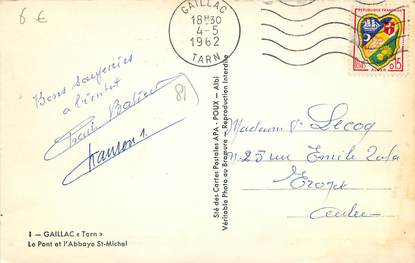 6 €
GAILLAC
18H30
4-5
1962
TARN
REPUBLIQUE FRANÇAISE
0,15
ALGER
Bons souvenirs
a bientot
81
Sté des Cartes Postales APA - POUX - Albi
Véritable Photo au Bromure - Reproduction Interdite
Madame Lecoq
25 rue Emile Zola
Troyes
Aube
1 - GAILLAC « Tarn »
Le Pont et l'Abbaye St-Michel